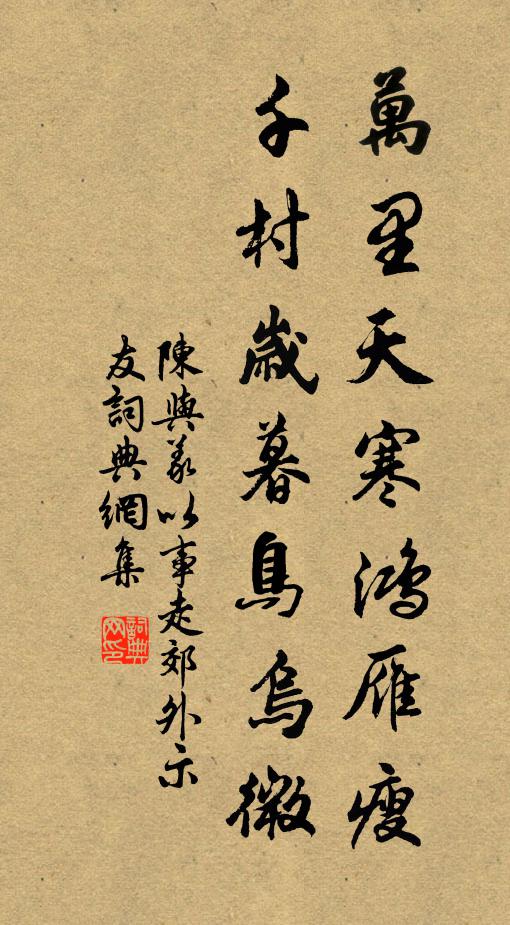 萬里天寒鴻雁瘦
千村歲暮鳥烏微
陳與義以事走郊外示
友詞典網集
詞典网印